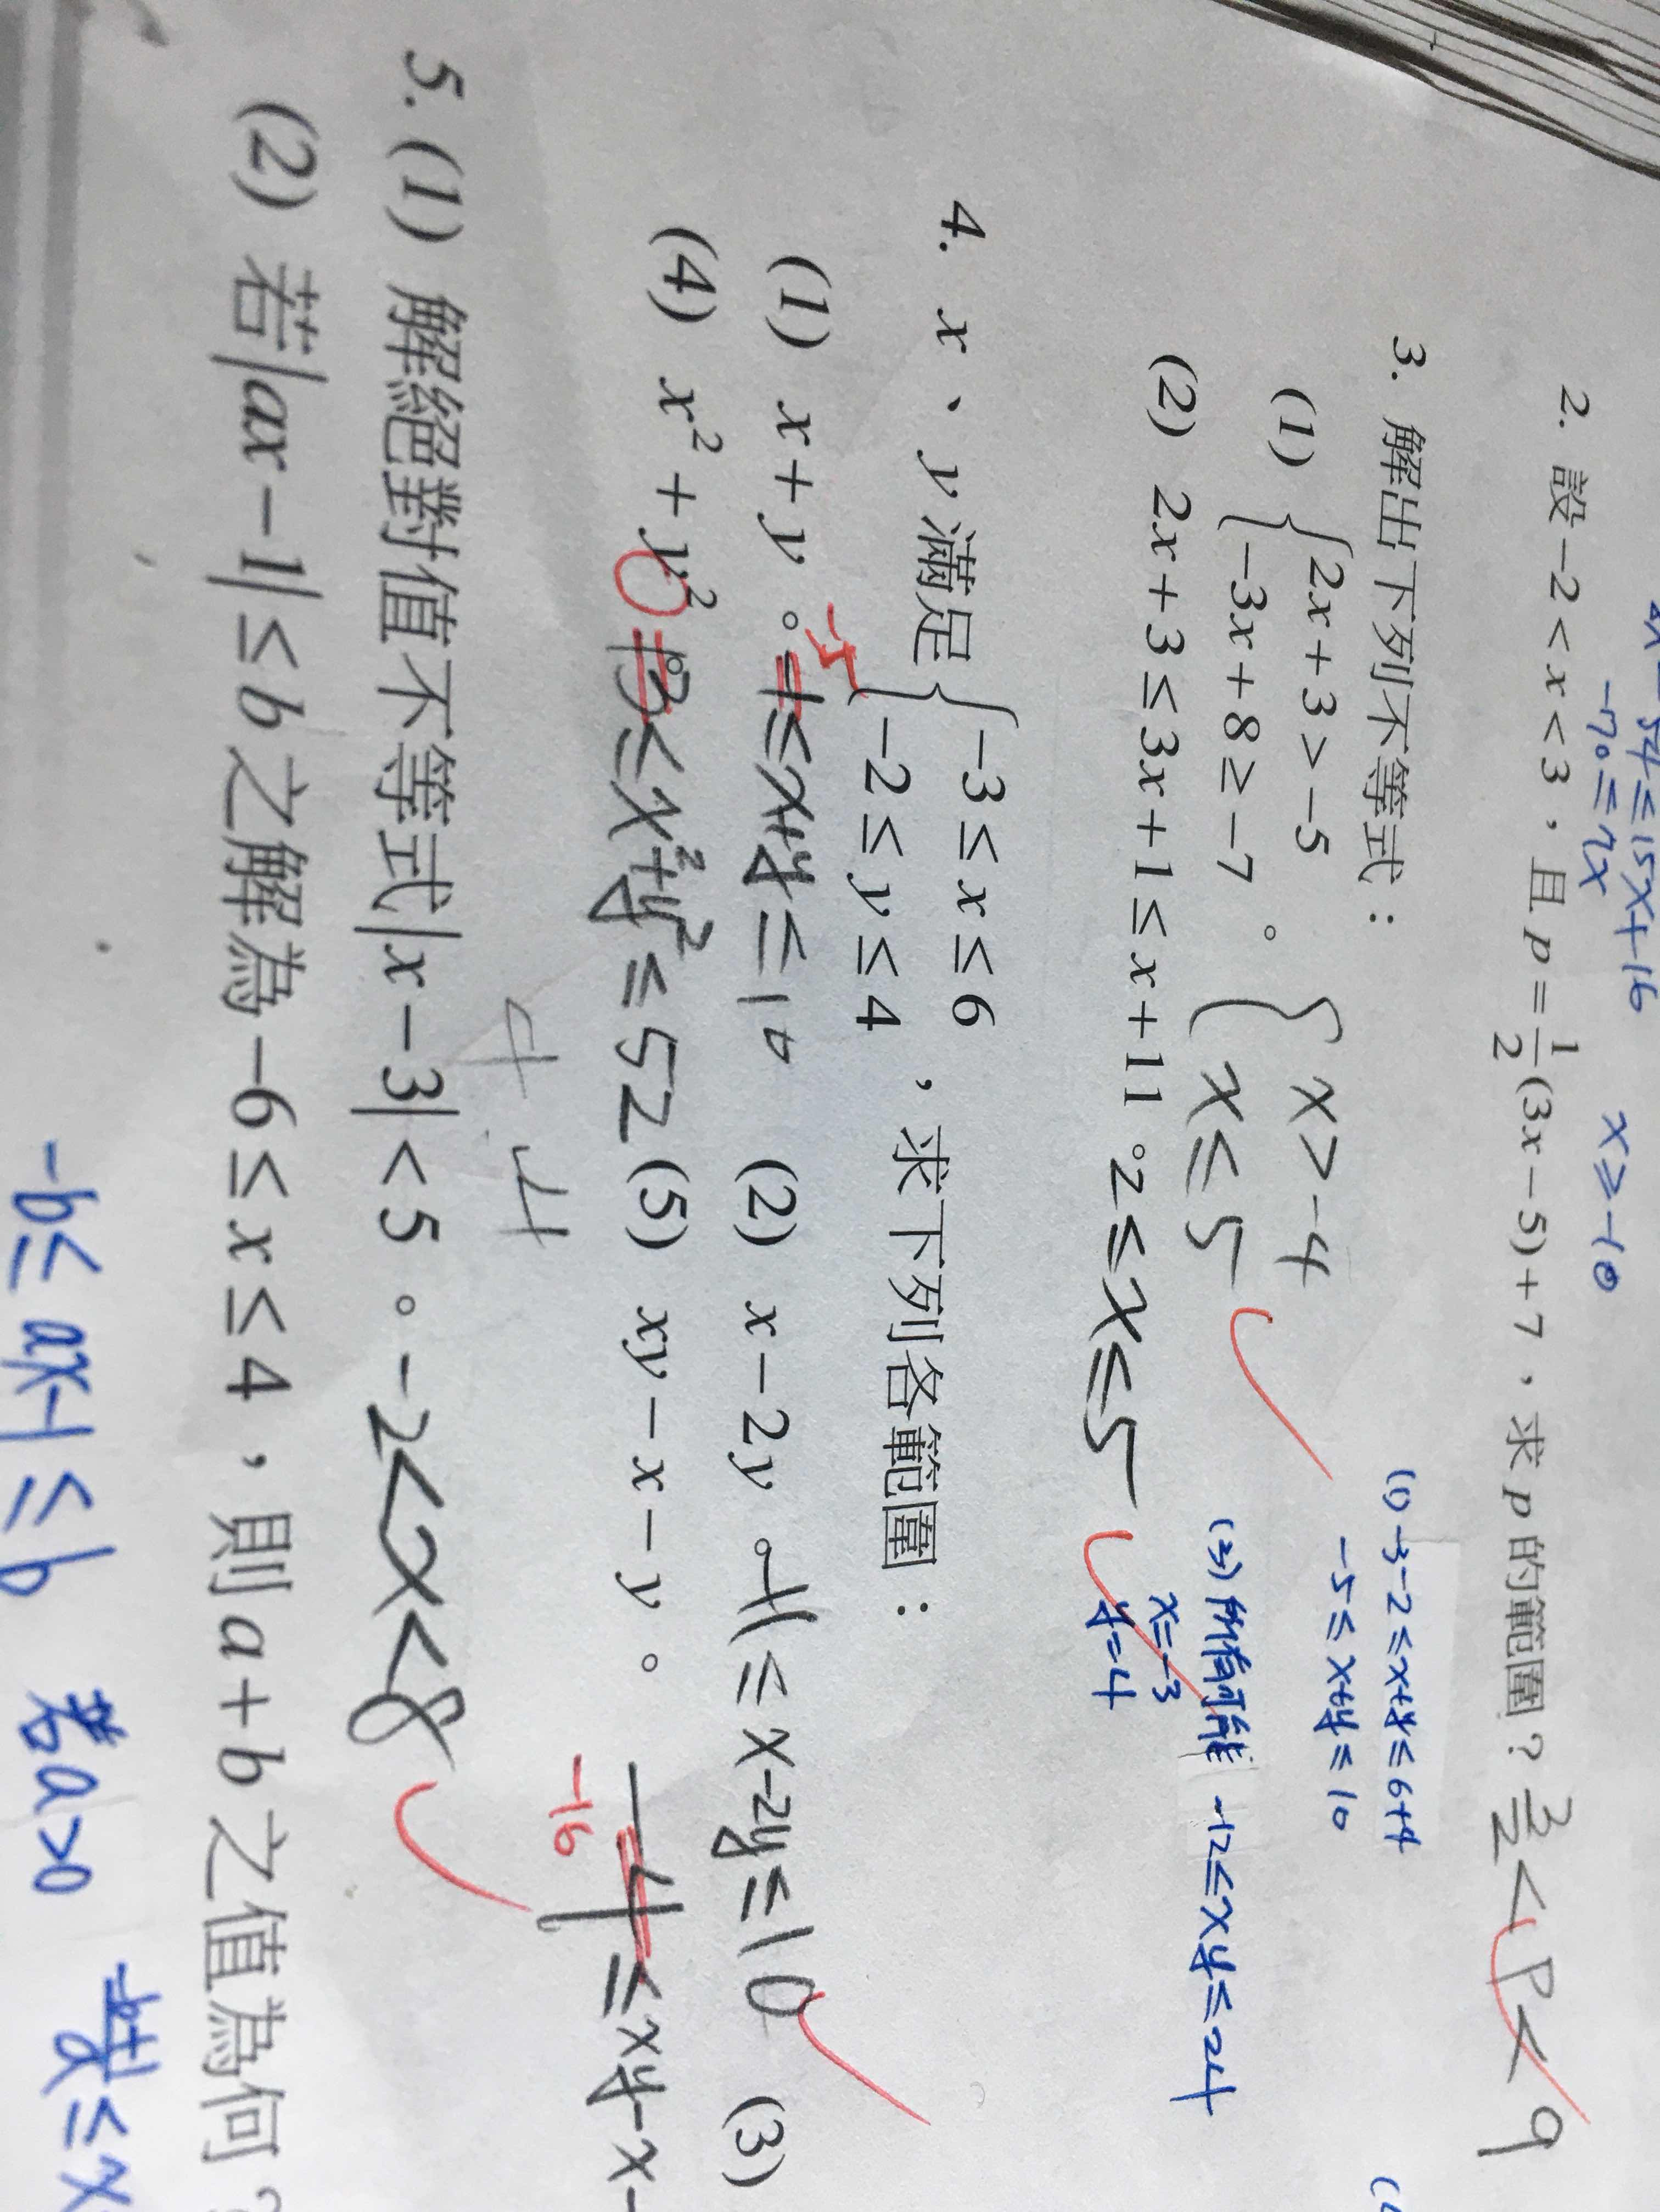 -54≤15x+16
-70≤7x x≥-10
2. 設-2<x<3，且p=1/2(3x-5)+7，求p的範圍？ 3/2<P<9
3. 解出下列不等式：
(1) {2x+3>-5 {x>-4
-3x+8≥-7。 x≤5
(2) 2x+3≤3x+1≤x+11。2≤x≤5
(1) -3-2≤x+y≤6+4
-5≤x+y≤10
(3) 所有可能 -12≤xy≤24
x=-3
y=4
4. x、y滿足{-3≤x≤6
-2≤y≤4，求下列各範圍：
-5
(1) x+y。-1≤x+y≤10 (2) x-2y。-11≤x-2y≤10 (3)
(4) x²+y² 13≤x²+y²≤52 (5) xy-x-y。 -4≤xy-x-
0
-16
5. (1) 解絕對值不等式|x-3|<5。-2<x<8
(2) 若|ax-1|≤b之解為-6≤x≤4，則a+b之值為何？
-b≤ax-1≤b 若a>0 ≤x